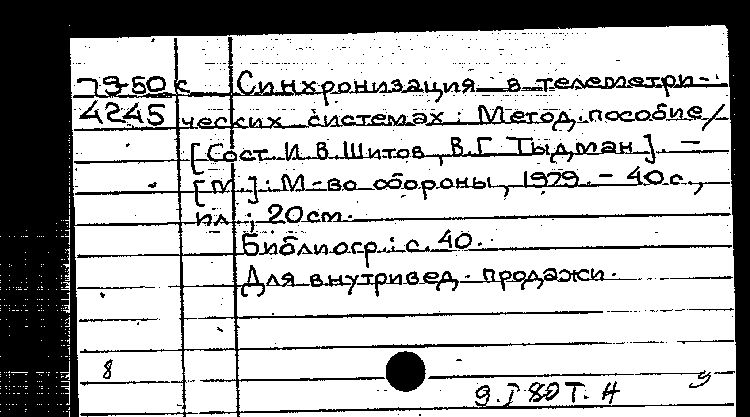 79-50 с Синхронизация в телеметри-
4245 ческих системах: Метод. пособие/
[Сост. И.В. Шитов, В.Г. Тыдман]. –
[М.]: М-во обороны, 1979. – 40 с.,
ил.; 20 см.
Библиогр.: с. 40.
Для внутривед. продажи.
8
9.I 80 Т. Н